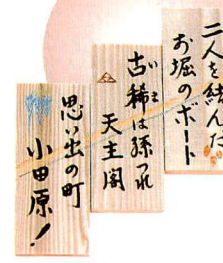 二人を結んだ
お堀のボート
古稀は孫つれ
いま
天主閣
思い出の町
小田原!